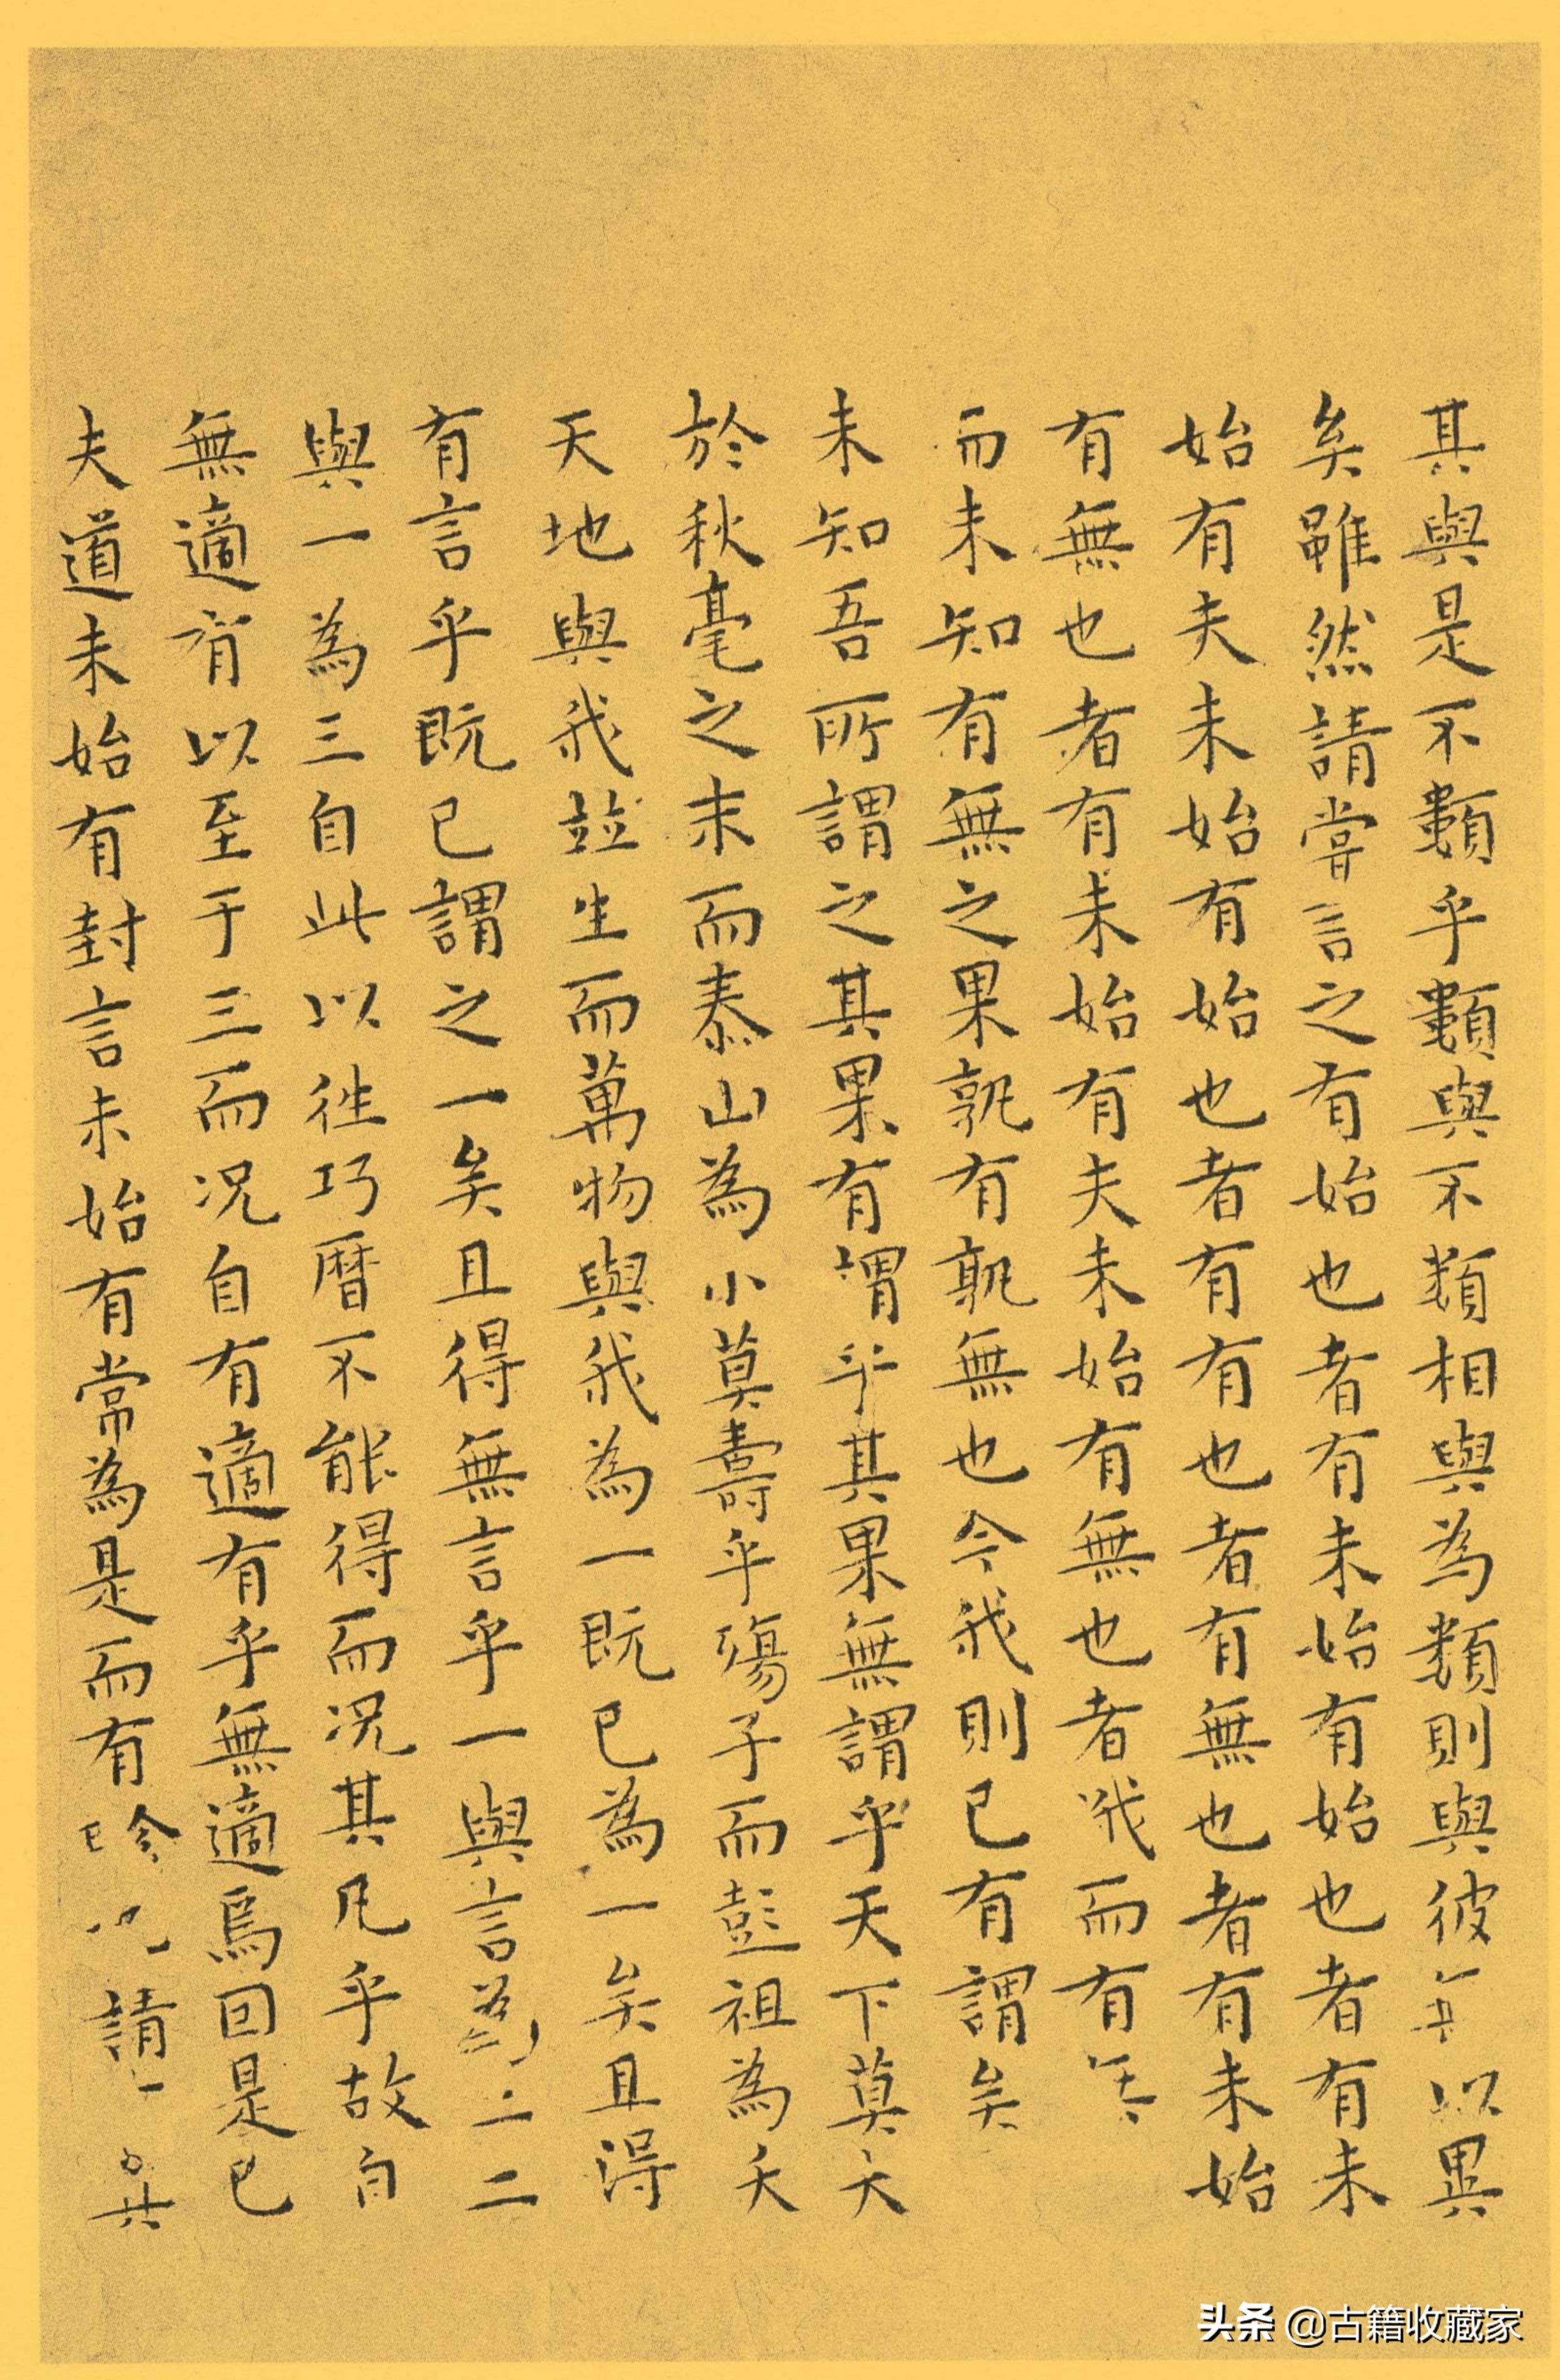 其與是不類乎類與不類相與為類則與彼以異
矣雖然請嘗言之有始也者有未始有始也者有未
始有夫未始有始也者有有也者有無也者有未始
有無也者有未始有夫未始有無也者我而有
而未知有無之果孰有孰無也今我則已有謂矣
未知吾所謂之其果有謂乎其果無謂乎天下莫大
於秋毫之末而泰山為小莫壽乎殤子而彭祖為夭
天地與我竝生而萬物與我為一既已為一矣且得
有言乎既已謂之一矣且得無言乎一與言為二二
與一為三自此以徃巧暦不能得而况其凡乎故自
無適有以至于三而况自有適有乎無適焉因是已
夫道未始有封言未始有常為是而有畛也請其
头条 @古籍收藏家